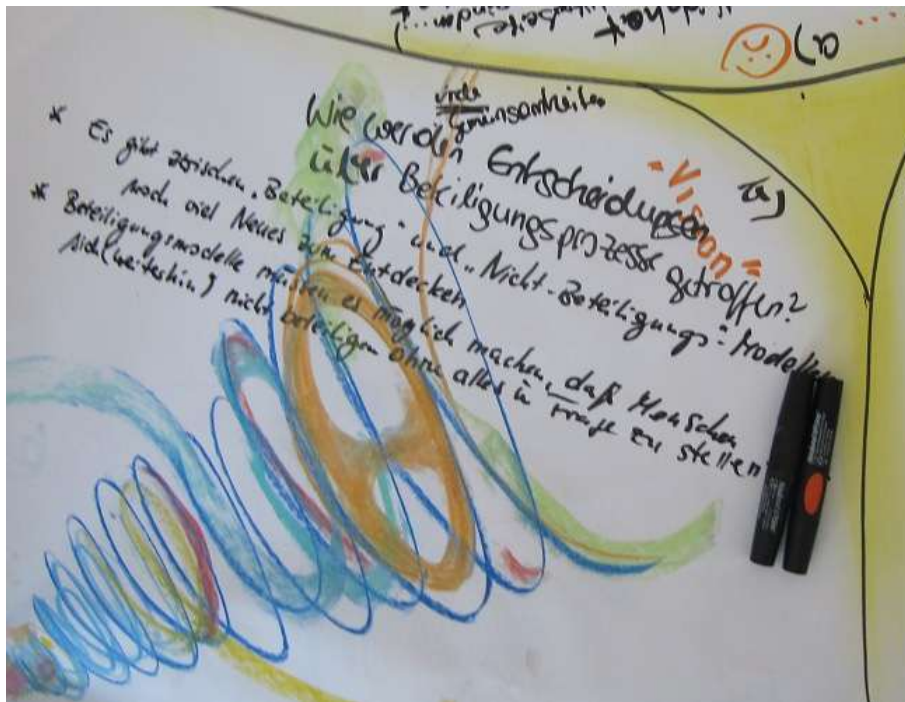 viele
gemeinsamkeiten
Wie werden Entscheidungen
über Beteiligungsprozesse getroffen?
"Vision"
* Es gibt zwischen "Beteiligung" und "Nicht-Beteiligungs"-Modellen
noch viel Neues zum Entdecken
* Beteiligungsmodelle müssten es möglich machen, daß Menschen
sich (weiterhin) nicht beteiligen ohne alles in Frage zu stellen